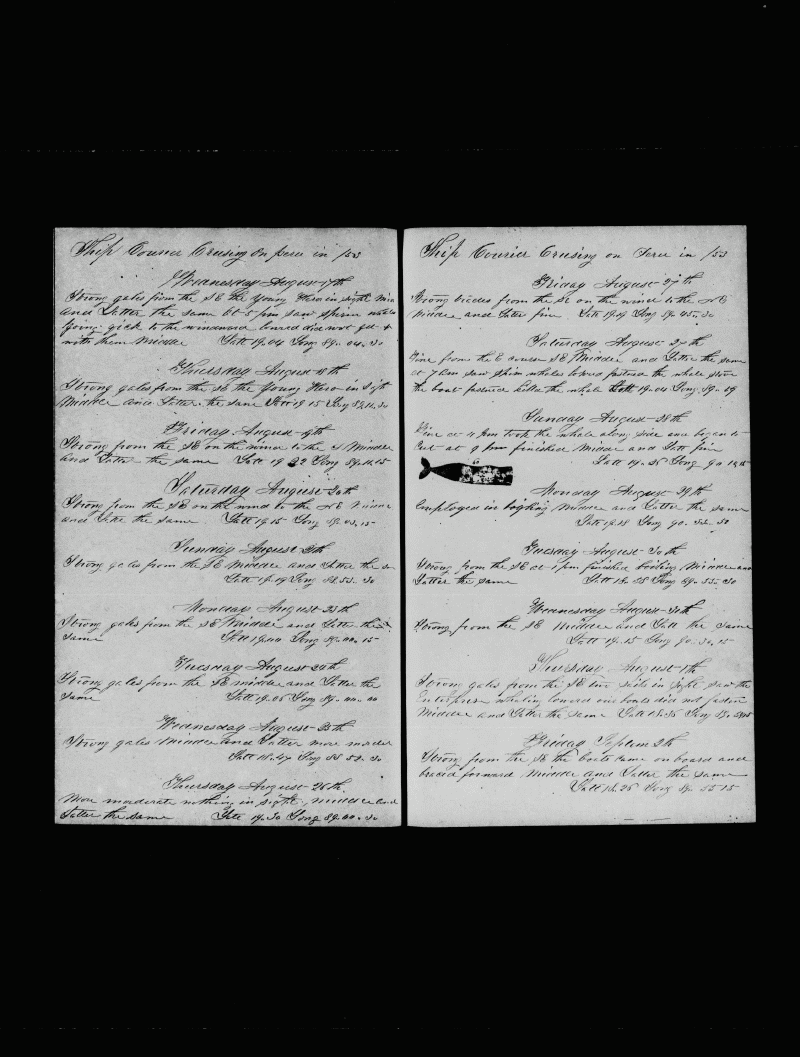 Ship Courier Cruising on Peru in /53
Wednesday August 17th
Strong gales from the SE the Young Hero in sight
and Latter the same at 5 pm saw sperm whales
going quick to the windward lowered did not get
with them Middle Latt 19.04 Long 89.04.30
Thursday August
Strong gales from the SE the Young Hero in sight
Middle and Latter the same Latt 19 15 Long
Friday August 19th
Strong from the SE on the wind to the Middle
and Latter the same Latt 19 22 Long 89.
Saturday August 20th
Strong from the SE on the wind to the NE Middle
and Latter the same Latt 19.15 Long 89.03.15
Sunday August
Strong gales from the SE Middle and Latter the
Latt 19.19 Long 88.53.30
Monday August
Strong gales from the SE Middle and Latter the
same Latt 19.00 Long 89.00.15
Tuesday August 24th
Strong gales from the SE middle and Latter the
same Latt 19.06 Long 89.00.00
Wednesday August 25th
Strong gales Middle and Latter more moder
Latt 18.47 Long 88 52.30
Thursday August 26th
More moderate nothing in sight middle and
Latter the same Latt 19.30 Long 89.00.30
Ship Courier Cruising on Peru in /53
Friday August 27th
Strong breezes from the SE on the wind to the NE
Middle and Latter fine Latt 19.09 Long 89.45.30
Saturday August 27th
Fine from the E course SE Middle and Latter the same
at 7 am saw sperm whales lowered fastened the whale stove
the boat fastened killed the whale Latt 19.04 Long 89.
Sunday August 28th
Fine at 4 pm took the whale along side and began to
Cut at 9 pm finished Middle and Latt fine
Latt 19.26 Long 90
Monday August 29th
Employed in boiling Middle and Latter the same
Latt 19.18 Long 90.
Tuesday August 30th
Strong from the SE at 1 pm finished boiling Middle and
Latter the same Latt 18.58 Long 89.55.30
Wednesday August
Strong from the SE Middle and Latt the same
Latt 19.15 Long 90.30.15
Thursday August 1th
Strong gales from the SE two sails in sight saw the
Enterprise whaling lowered our boats did not fasten
Middle and Latter the same Latt 18.36 Long 89.
Friday Septem 2th
Strong from the SE the boats came on board and
braced forward Middle and Latter the same
Latt 18.26 Long 89 55 15